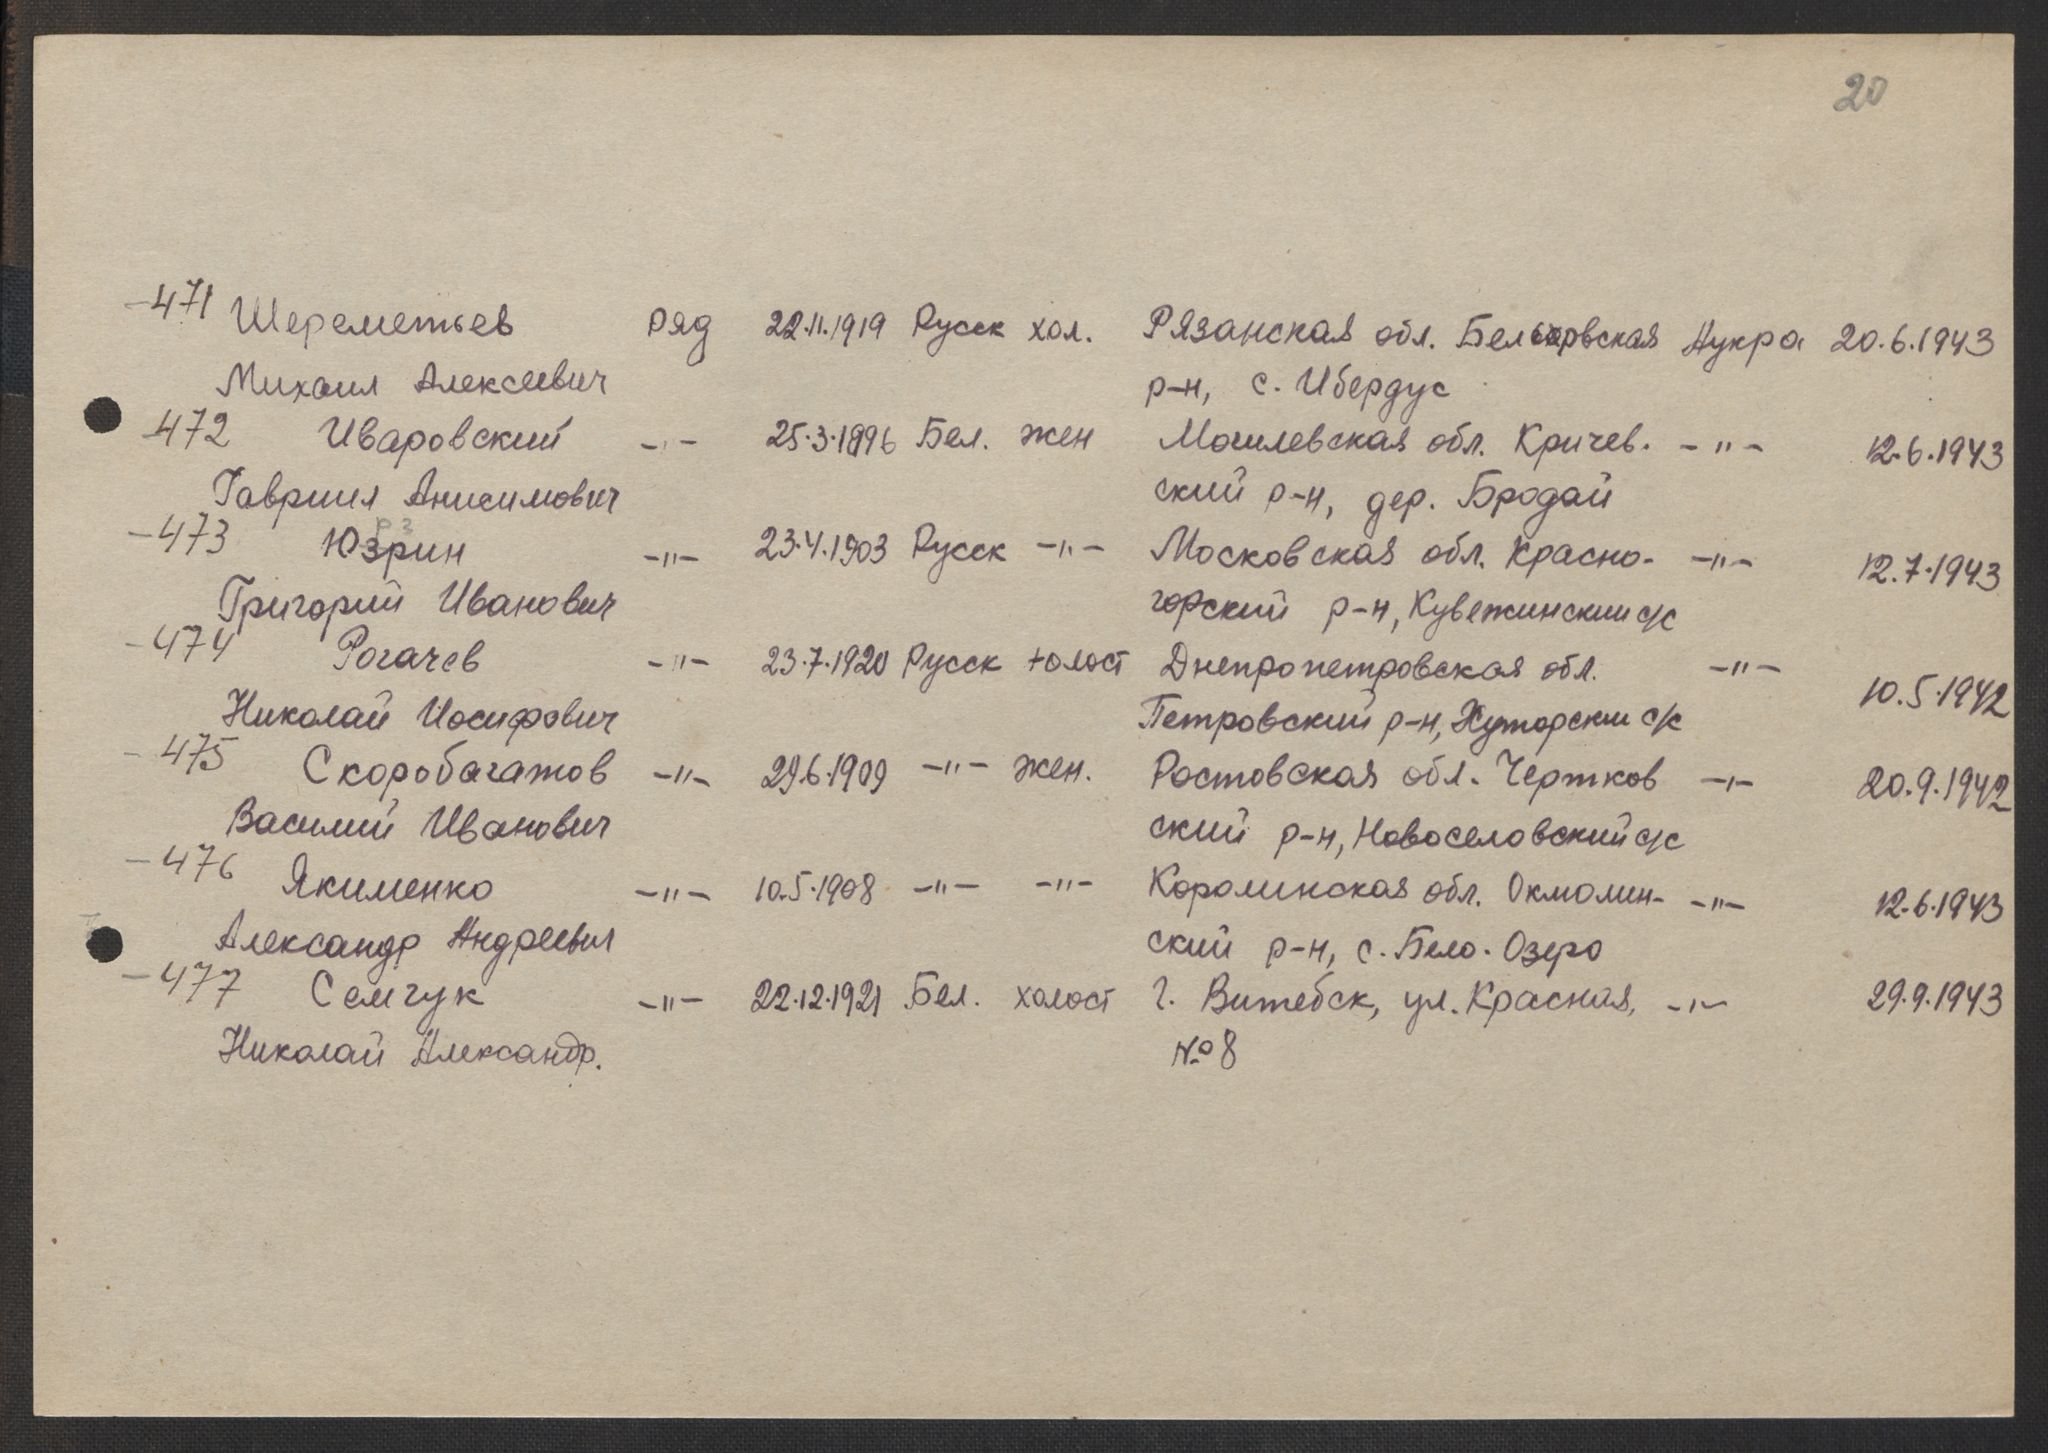 20
-471 Шереметьев ряд 22.11.1919 Русск хол. Рязанская обл. Бельковская Аукра 20.6.1943
Михаил Алексеевич р-н, с. Ибердус
472 Иваровский -"- 25.3.1896 Бел. жен Могилевская обл. Кричев- -"- 12.6.1943
Гавриил Анисимович ский р-н, дер. Бродай
-473 Юзрин -"- 23.4.1903 Русск -"- Московская обл. Красно- -"- 12.7.1943
Григорий Иванович горский р-н, Кувежинский с/с
-474 Рогачев -"- 23.7.1920 Русск холост Днепропетровская обл. -"- 10.5.1942
Николай Иосифович Петровский р-н, Хуторский с/с
-475 Скоробагатов -"- 29.6.1909 -"- жен. Ростовская обл. Чертков -"- 20.9.1942
Василий Иванович ский р-н, Новоселовский с/с
-476 Якименко -"- 10.5.1908 -"- -"- Королинская обл. Окмолин- -"- 12.6.1943
Александр Андреевич ский р-н, с. Бело-Озеро
-477 Семчук -"- 22.12.1921 Бел. холост г. Витебск, ул. Красная, -"- 29.9.1943
Николай Александр. №8